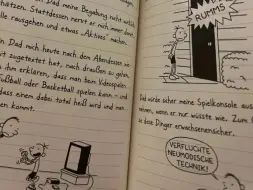 Dad meine Begabung nicht
hätzen. Stattdessen nervt er mich immer damit,
lle rausgehen und etwas „Aktives" machen.
Dad mich heute nach den Abendessen
zugetextet hat, nach draußen zu gehen,
ihm erklären, dass man beim Videospielen
Fußball oder Basketball spielen kann – und
dass einem dabei total heiß wird und man
kommt.
RUMMS
Dad würde sicher meine Spielkonsole aus
reißen, wenn er nur wüsste wie. Zum
diese Dinger erwachsenensicher.
VERFLUCHTE
NEUMODISCHE
TECHNIK!